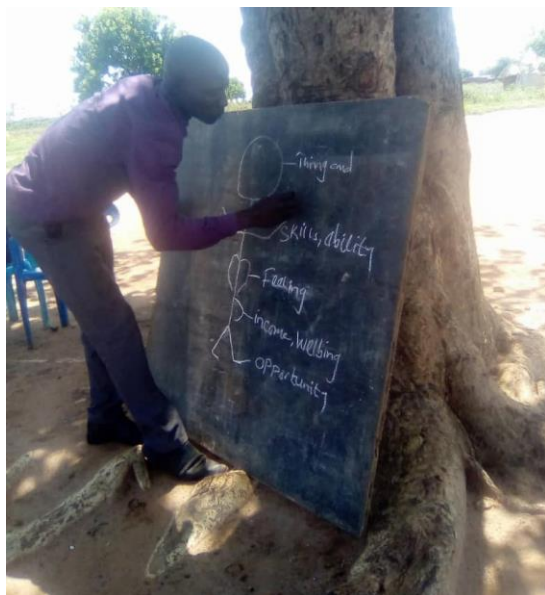 Thinng and
Skills, ability
Feeling
income, welbing
opportunity